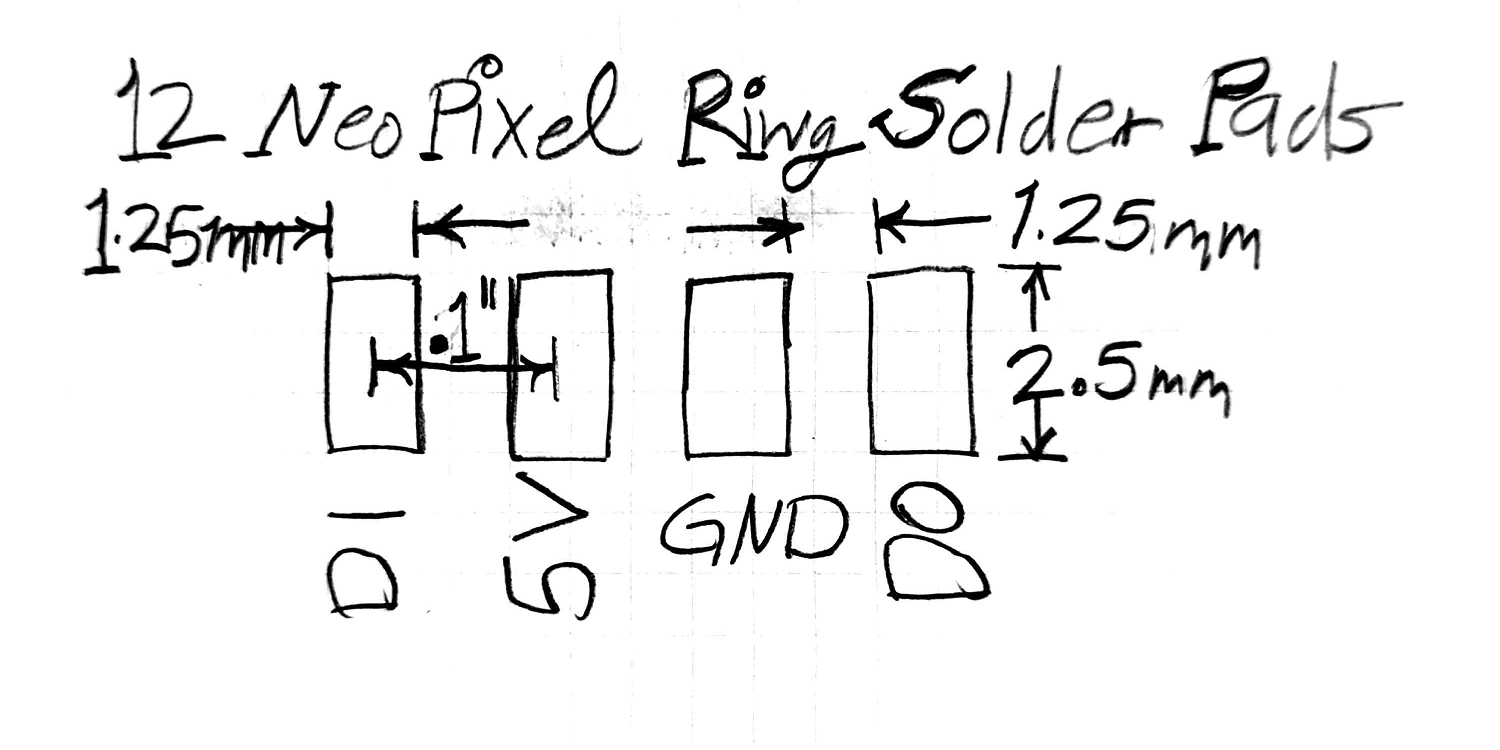 12 NeoPixel Ring Solder Pads
1.25mm 1.25mm
.1"
2.5mm
DI 5V GND DO